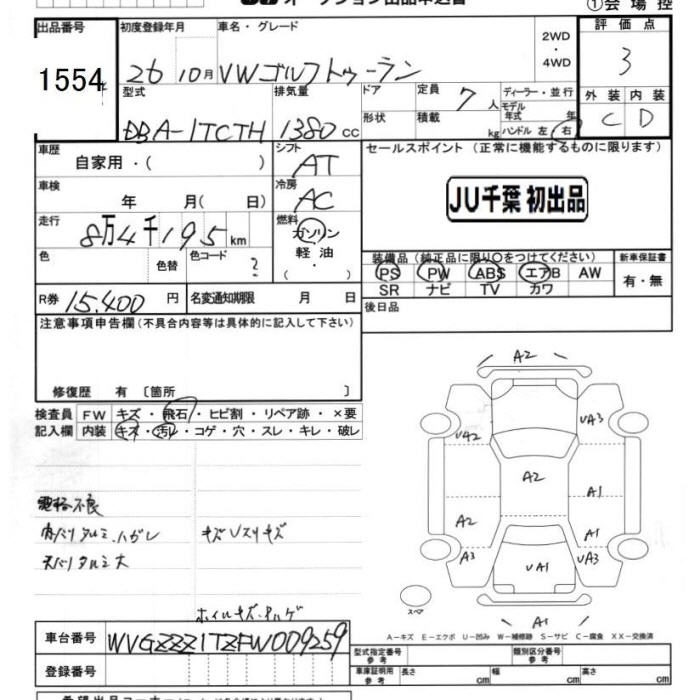 オークション出品申込書 ①会場控
出品番号 初度登録年月 車名・グレード 2WD・4WD 評価点
1554 26 10月 VWゴルフトゥーラン 3
型式 排気量 ドア 定員 7人 ディーラー・並行 外装 内装
モデル年式 年
DBA-1TCTH 1380cc 形状 積載 kg ハンドル 左・右 C D
車歴 自家用・( ) シフト AT セールスポイント (正常に機能するものに限ります)
車検 年 月(日) 冷房 AC JU千葉 初出品
走行 8万4千195km 燃料 ガソリン・軽油・( )
装備品(純正品に限り○をつけてください) 新車保証書
色 色替 色コード ? PS PW ABS エアB AW 有・無
SR ナビ TV カワ
R券 15,400円 名変通知期限 月 日 後日品
注意事項申告欄(不具合内容等は具体的に記入して下さい)
修復歴 有 〔箇所 〕
検査員 FW キズ・飛石・ヒビ割・リペア跡・×要
記入欄 内装 キズ・汚レ・コゲ・穴・スレ・キレ・破レ
A2
UA2 UA3
A2 A1
A2 A1
A3 UA1 UA3
A1
スペア
電格不良
内バリタルミ、ハガレ キズUスリキズ
天バリタルミ大
ホイルキズ・ハゲ
A-キズ E-エクボ U-凹み W-補修跡 S-サビ C-腐食 XX-交換済
車台番号 WVGZZZ1TZFW009259
型式指定番号 参考 類別区分番号 参考
登録番号 車庫証明用 参考 長さ cm 幅 cm 高さ cm